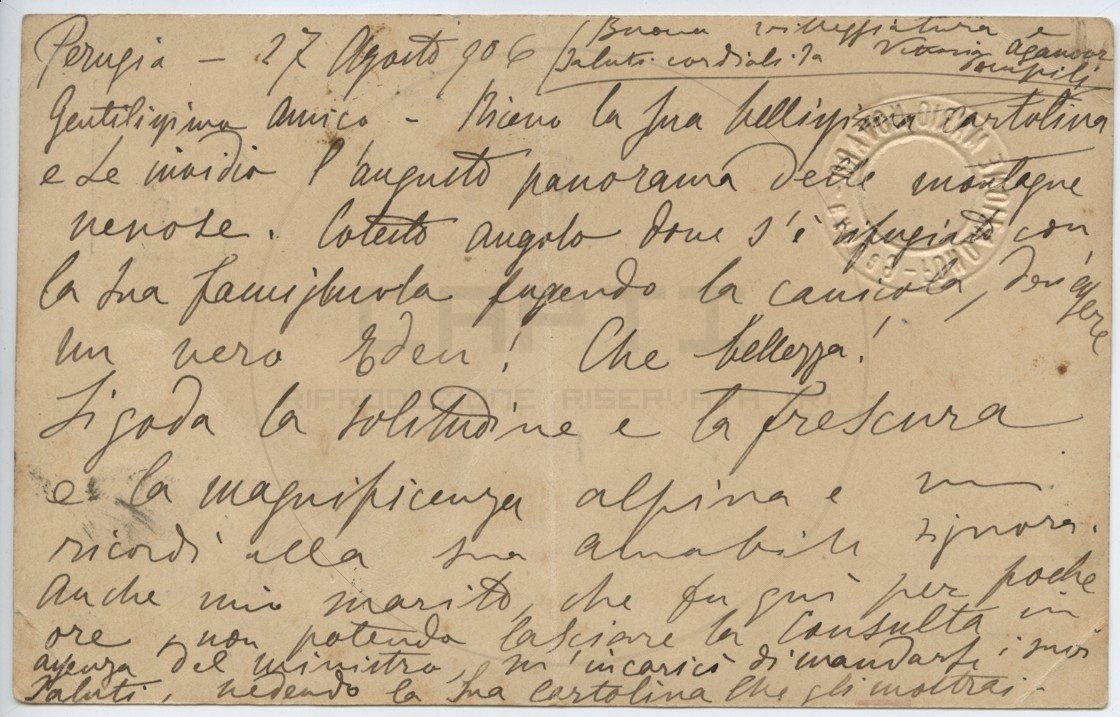 Perugia - 27 Agosto 906
(Buona villeggiatura e
saluti cordiali da Vittoria Aganoor
Pompilj
Gentilissimo Amico - Ricevo la Sua bellissima Cartolina
e Le invidio l'augusto panorama delle montagne
nevose. Cotesto angolo dove s'è rifugiato con
la Sua famigliuola fugendo la canicola, dev'essere
un vero Eden! Che bellezza!
Si goda la solitudine e la frescura
e la magnificenza alpina e mi
ricordi alla sua amabile signora.
Anche mio marito, che fu qui per poche
ore, non potendo lasciare la Consulta in
assenza del ministro, m'incaricò di mandarle i suoi
saluti, vedendo la Sua Cartolina che gli mostrai.
CAPTI
RIPRODUZIONE RISERVATA (R)